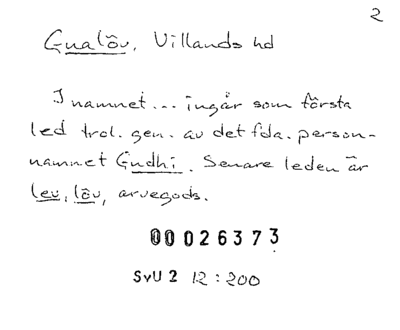 2
Gualöv, Villands hd
I namnet... ingår som första
led trol. gen. av det fda. person-
namnet Gudhi. Senare leden är
lev, löv, arvegods.
00026373
SvU 2 12:200